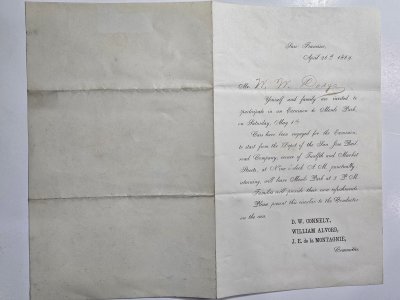 San Francisco,
April 26th 1869.
Mr. W. W. Dodge
Yourself and family are invited to
participate in an Excursion to Menlo Park,
on Saturday, May 1st.
Cars have been engaged for the Excursion,
to start from the Depot of the San Jose Rail
road Company, corner of Twelfth and Market
Streets, at Nine o'clock A. M. punctually,
returning, will leave Menlo Park at 5 P. M.
Families will provide their own refreshments.
Please present this circular to the Conductor
on the cars.
D. W. CONNELY,
WILLIAM ALVORD,
J. E. de la MONTAGNIE,
Committee.